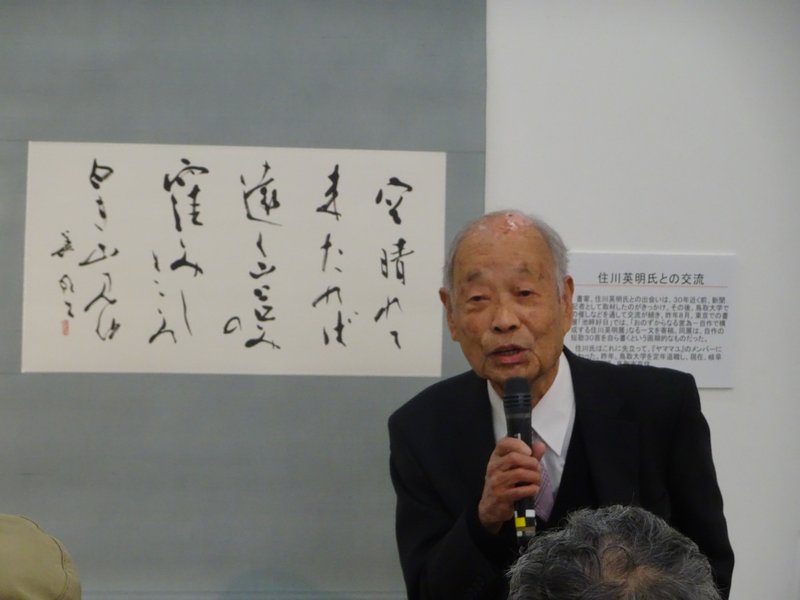 空晴れて
来たれば
遠く
白き山見ゆ
住川英明氏との交流
書家、住川英明氏との出会いは、30年近く前、新聞
記者として取材したのがきっかけ。その後、鳥取大学で
の催しなどを通して交流が続き、昨年8月、東京での書
展「池畔好日」では、「おのずからなる室為―自作で構
成する住川英明展」なる一文を寄稿。同展は、自作の
短歌30首を自ら書くという画期的なものだった。
住川氏はこれに先立って、『ヤママユ』のメンバーに
った。昨年、鳥取大学を定年退職し、現在、岐阜